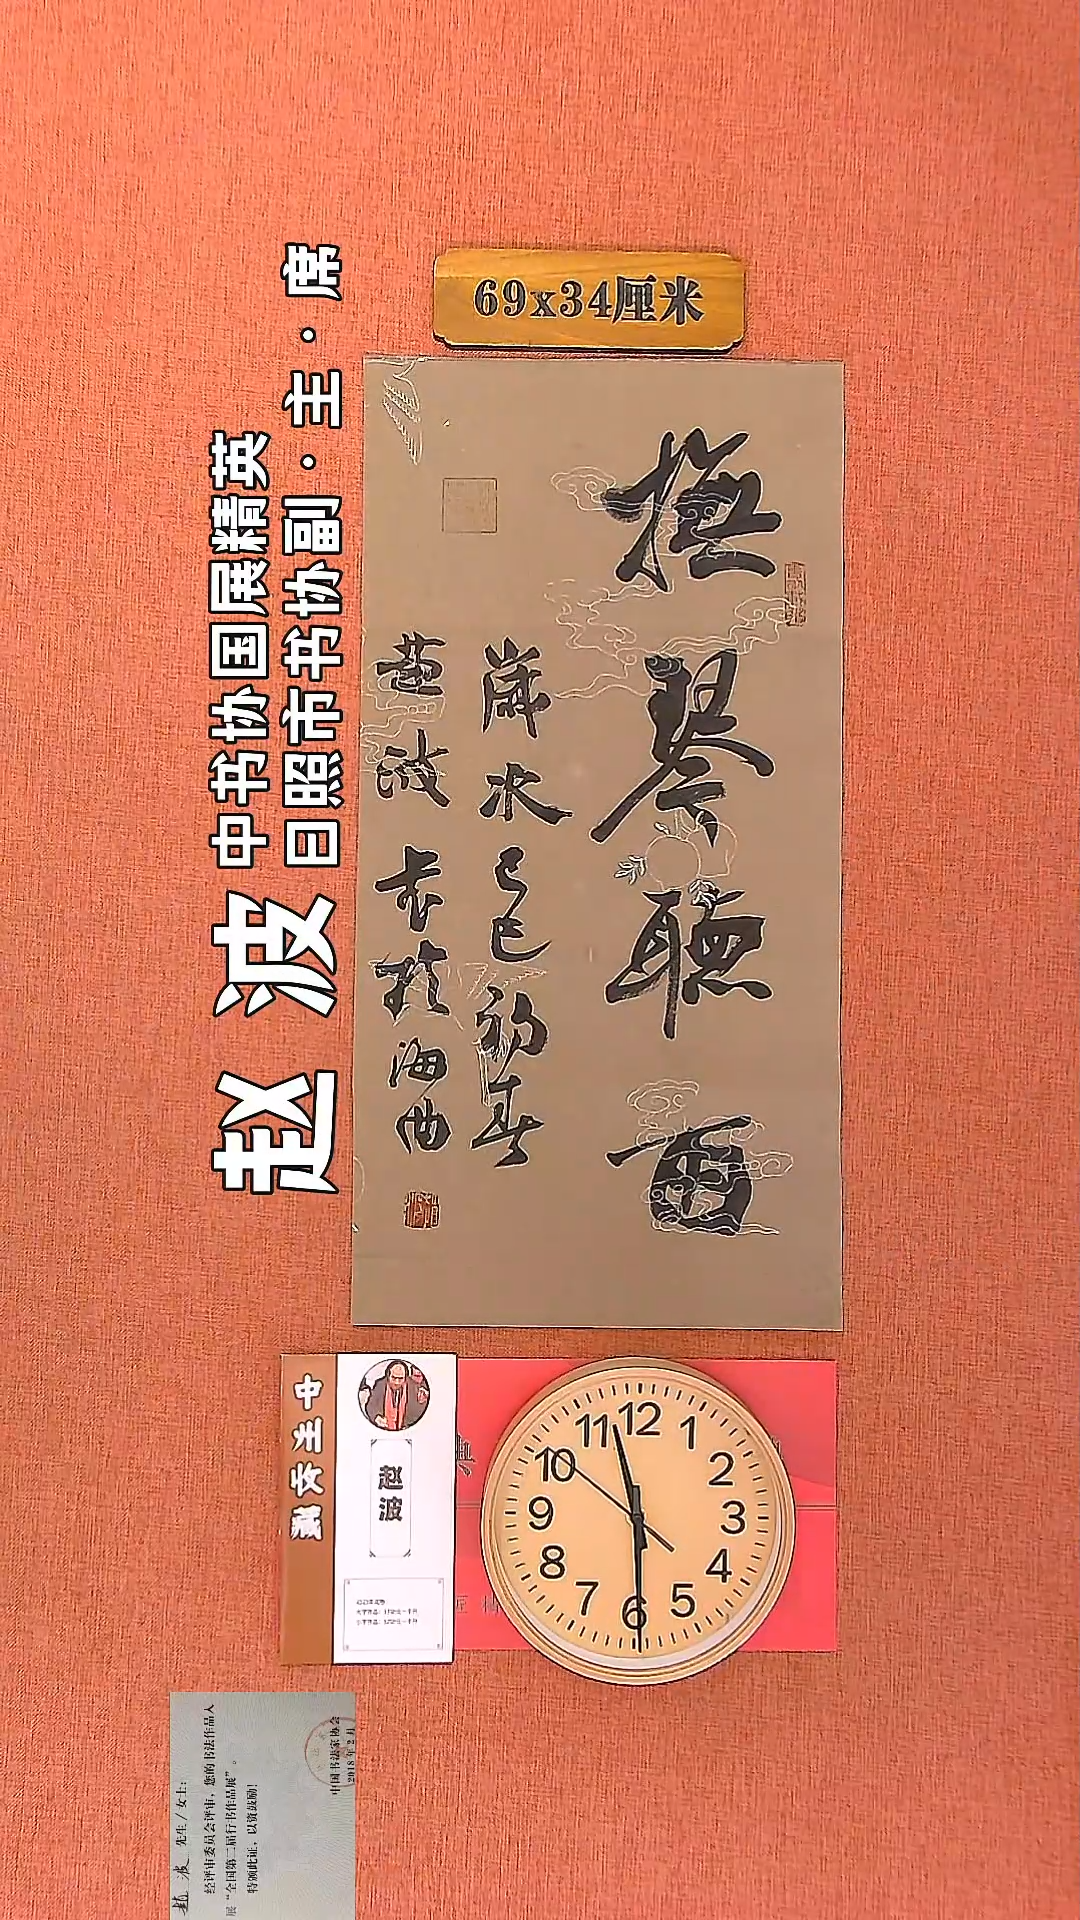 69x34厘米
中书协国展精英
日照市书协副·主·席
赵波
撫琴聽雨
歲次己巳初春
趙波书於海曲
中国女主藏
赵
波
12
1
2
3
4
5
6
7
8
9
10
11
趙波 先生/女士:
经评审委员会评审,您的书法作品入
展“全国第二届行书作品展”。
特颁此证,以资鼓励!
中国书法家协会
2018年2月